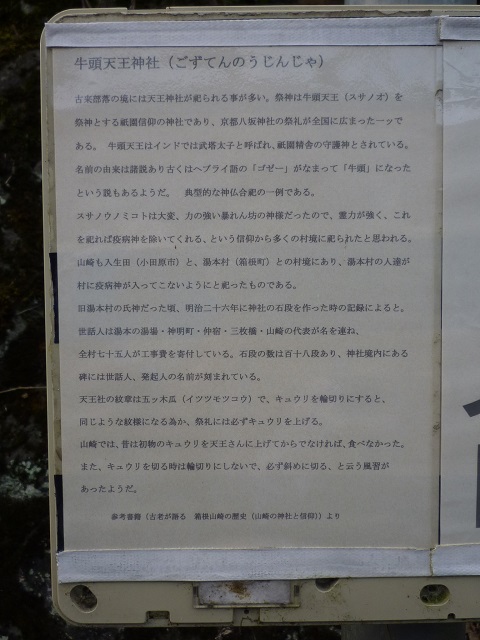 牛頭天王神社（ごずてんのうじんじゃ）
古来部落の境には天王神社が祀られる事が多い。祭神は牛頭天王（スサノオ）を
祭神とする祇園信仰の神社であり、京都八坂神社の祭礼が全国に広まった一ッで
ある。　牛頭天王はインドでは武塔太子と呼ばれ、祇園精舎の守護神とされている。
名前の由来は諸説あり古くはヘブライ語の「ゴゼー」がなまって「牛頭」になった
という説もあるようだ。　典型的な神仏合祀の一例である。
スサノウノミコトは大変、力の強い暴れん坊の神様だったので、霊力が強く、これ
を祀れば疫病神を除いてくれる、という信仰から多くの村境に祀られたと思われる。
山崎も入生田（小田原市）と、湯本村（箱根町）との村境にあり、湯本村の人達が
村に疫病神が入ってこないようにと祀ったものである。
旧湯本村の氏神だった頃、明治二十六年に神社の石段を作った時の記録によると、
世話人は湯本の湯場・神明町・仲宿・三枚橋・山崎の代表が名を連ね、
全村七十五人が工事費を寄付している。石段の数は百十八段あり、神社境内にある
碑には世話人、発起人の名前が刻まれている。
天王社の紋章は五ッ木瓜（イツツモツコウ）で、キュウリを輪切りにすると、
同じような紋様になる為か、祭礼には必ずキュウリを上げる。
山崎では、昔は初物のキュウリを天王さんに上げてからでなければ、食べなかった。
また、キュウリを切る時は輪切りにしないで、必ず斜めに切る、と云う風習が
あったようだ。
参考書籍（古老が語る　箱根山崎の歴史（山崎の神社と信仰））より